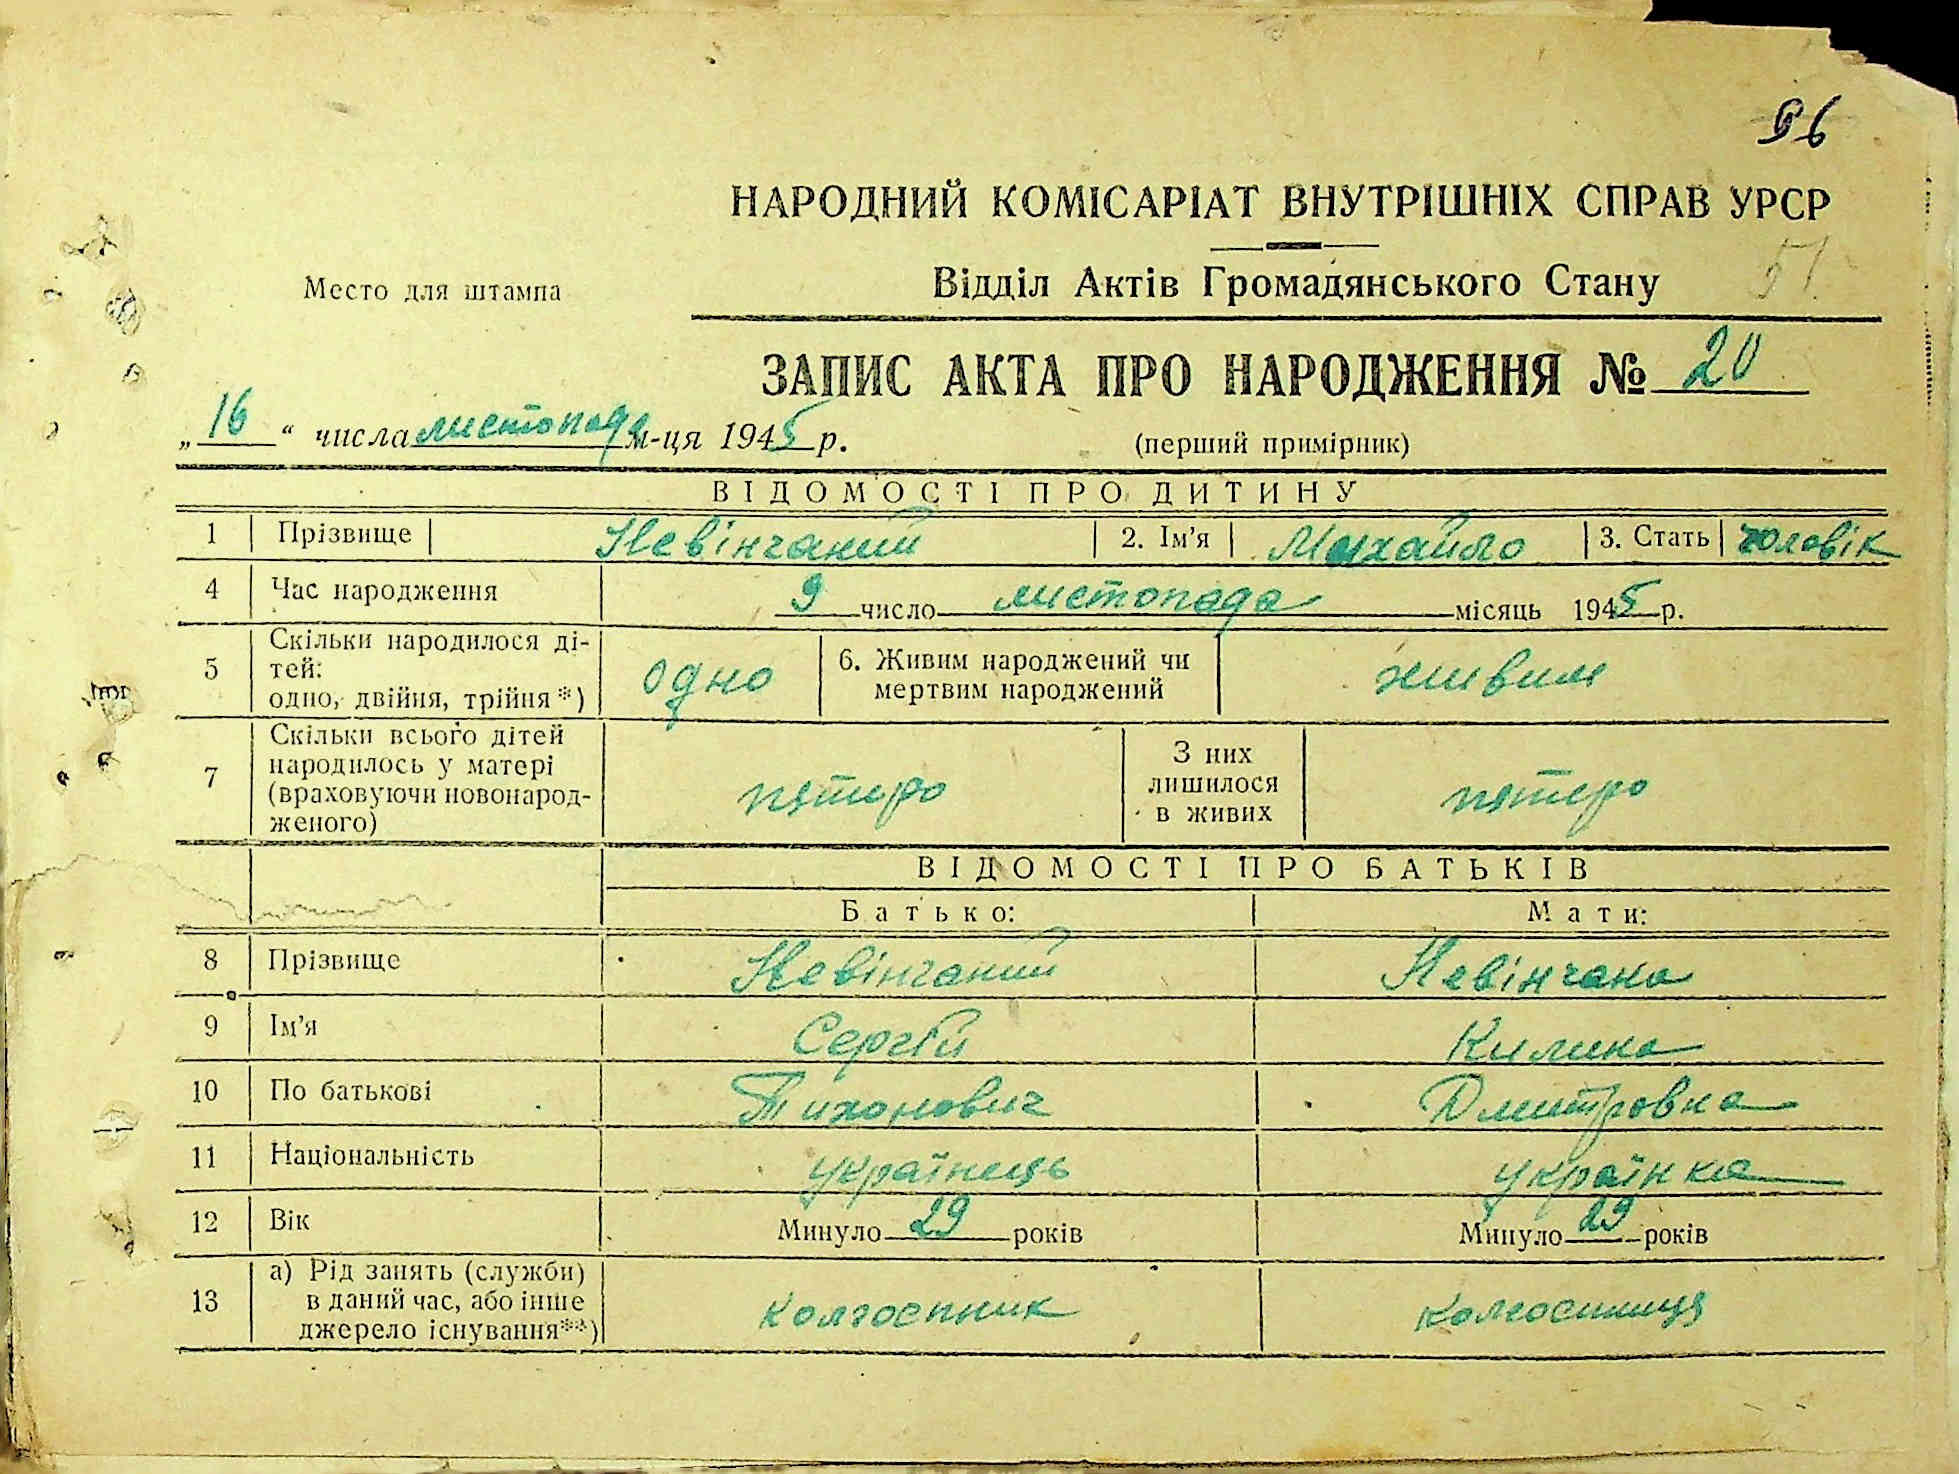 96
НАРОДНИЙ КОМІСАРІАТ ВНУТРІШНІХ СПРАВ УРСР
51
Место для штампа
Відділ Актів Громадянського Стану
ЗАПИС АКТА ПРО НАРОДЖЕННЯ № 20
„16“ числа листопада м-ця 1945 р.
(перший примірник)
ВІДОМОСТІ ПРО ДИТИНУ
1 Прізвище Невінчаний 2. Ім'я Михайло 3. Стать чоловік
4 Час народження 9 число листопада місяць 1945 р.
5 Скільки народилося ді-
тей:
одно, двійня, трійня*) одно 6. Живим народжений чи
мертвим народжений живим
7 Скільки всього дітей
народилось у матері
(враховуючи новонарод-
женого) пятиро З них
лишилося
в живих пятиро
ВІДОМОСТІ ПРО БАТЬКІВ
Батько: Мати:
8 Прізвище Невінчаний Невінчана
9 Ім'я Сергій Килина
10 По батькові Тихонович Дмитровна
11 Національність українець українка
12 Вік Минуло 29 років Минуло 29 років
13 а) Рід занять (служби)
в даний час, або інше
джерело існування**) колгоспник колгоспниця